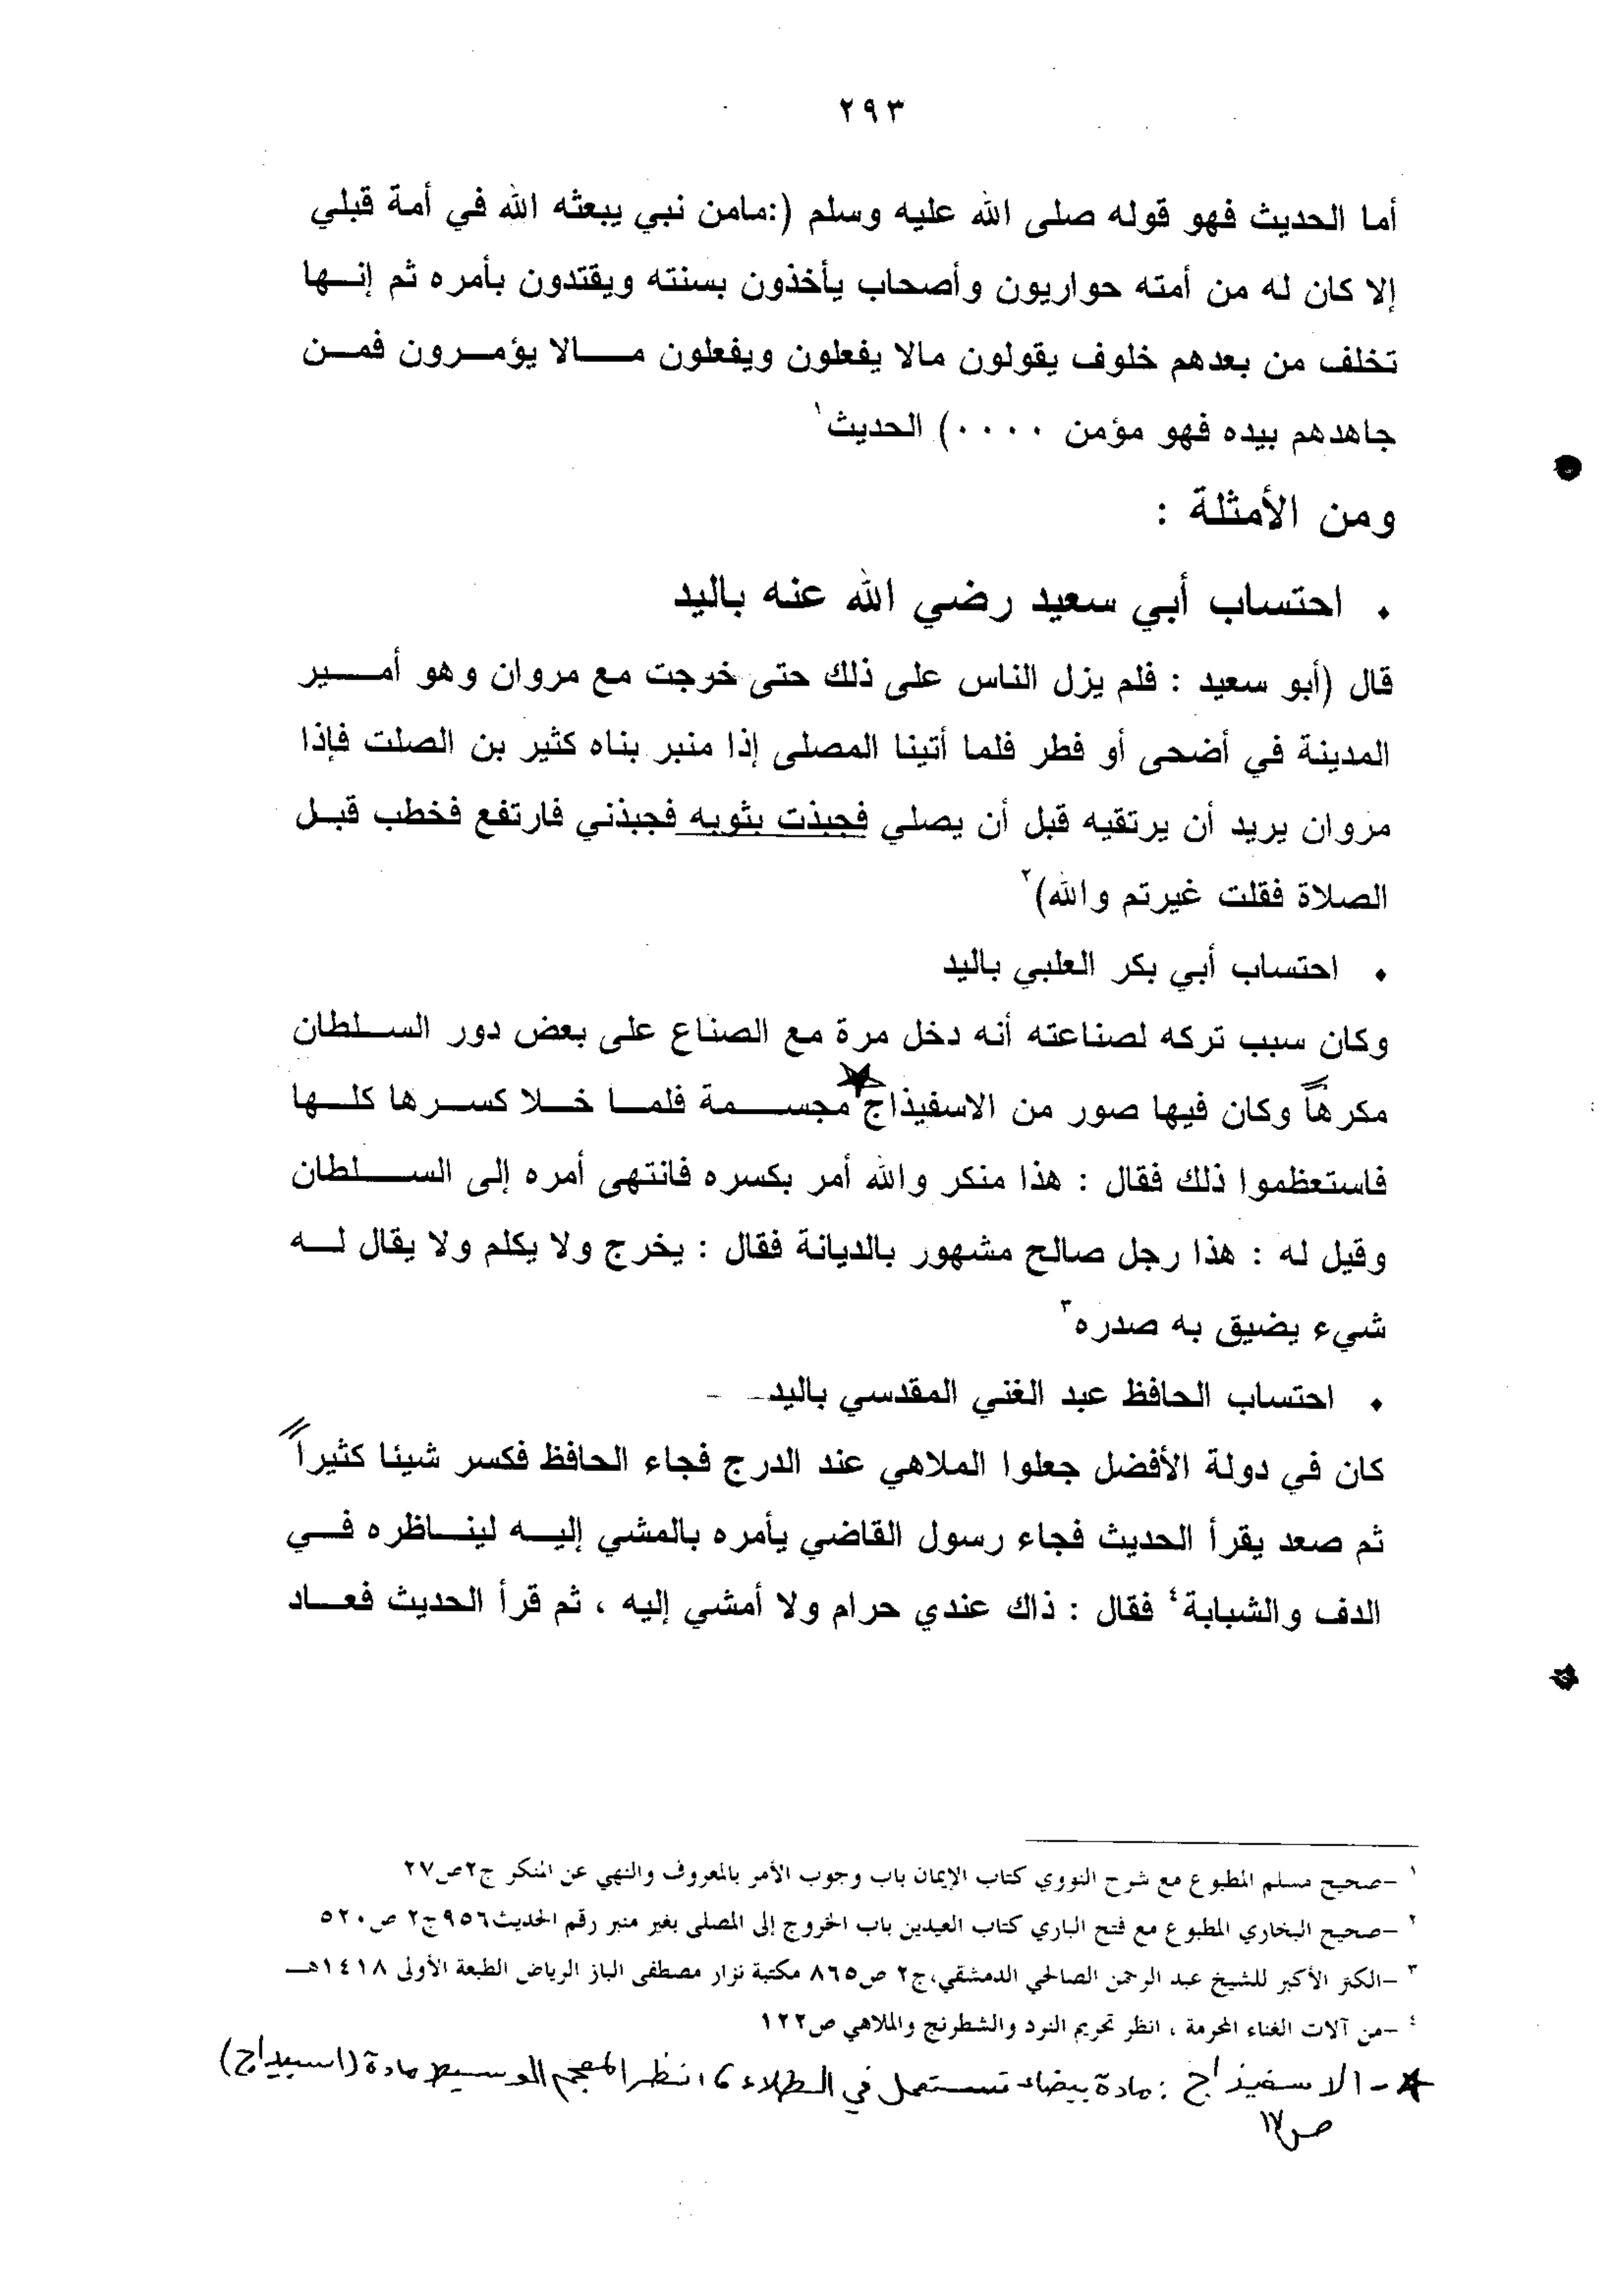 ٢٩٣
أما الحديث فهو قوله صلى الله عليه وسلم (:مامن نبي يبعثه الله في أمة قبلي
إلا كان له من أمته حواريون وأصحاب يأخذون بسنته ويقتدون بأمره ثم إنـــها
تخلف من بعدهم خلوف يقولون مالا يفعلون ويفعلون مـــــالا يؤمـــرون فمـــن
جاهدهم بيده فهو مؤمن ٠٠٠٠) الحديث١
ومن الأمثلة :
• احتساب أبي سعيد رضي الله عنه باليد
قال (أبو سعيد : فلم يزل الناس على ذلك حتى خرجت مع مروان وهو أمـــــير
المدينة في أضحى أو فطر فلما أتينا المصلى إذا منبر بناه كثير بن الصلت فإذا
مروان يريد أن يرتقيه قبل أن يصلي فجبذت بثوبه فجبذني فارتفع فخطب قبـل
الصلاة فقلت غيرتم والله)٢
• احتساب أبي بكر العلبي باليد
وكان سبب تركه لصناعته أنه دخل مرة مع الصناع على بعض دور الســـلطان
مكرهاً وكان فيها صور من الاسفيذاج* مجســـــمة فلمـــا خـــلا كســـرها كلـــها
فاستعظموا ذلك فقال : هذا منكر والله أمر بكسره فانتهى أمره إلى الســـــلطان
وقيل له : هذا رجل صالح مشهور بالديانة فقال : يخرج ولا يكلم ولا يقال لـــه
شيء يضيق به صدره٣
• احتساب الحافظ عبد الغني المقدسي باليد
كان في دولة الأفضل جعلوا الملاهي عند الدرج فجاء الحافظ فكسر شيئا كثيراً
ثم صعد يقرأ الحديث فجاء رسول القاضي يأمره بالمشي إليـــه لينـــاظره فـــي
الدف والشبابة٤ فقال : ذاك عندي حرام ولا أمشي إليه ، ثم قرأ الحديث فعـــاد
١ –صحيح مسلم المطبوع مع شرح النووي كتاب الإيمان باب وجوب الأمر بالمعروف والنهي عن المنكر ج٢ص٢٧
٢ –صحيح البخاري المطبوع مع فتح الباري كتاب العيدين باب الخروج إلى المصلى بغير منبر رقم الحديث٩٥٦ج٢ ص٥٢٠
٣ –الكتر الأكبر للشيخ عبد الرحمن الصالحي الدمشقي،ج٢ ص٨٦٥ مكتبة نزار مصطفى الباز الرياض الطبعة الأولى ١٤١٨هـــ
٤ –من آلات الغناء المحرمة ، انظر تحريم النرد والشطرنج والملاهي ص١٢٢
* - الاسفيذاج : مادة بيضاء تستعمل في الطلاء ، انظر المعجم الوسيط مادة (اسبيداج)
ص١٧